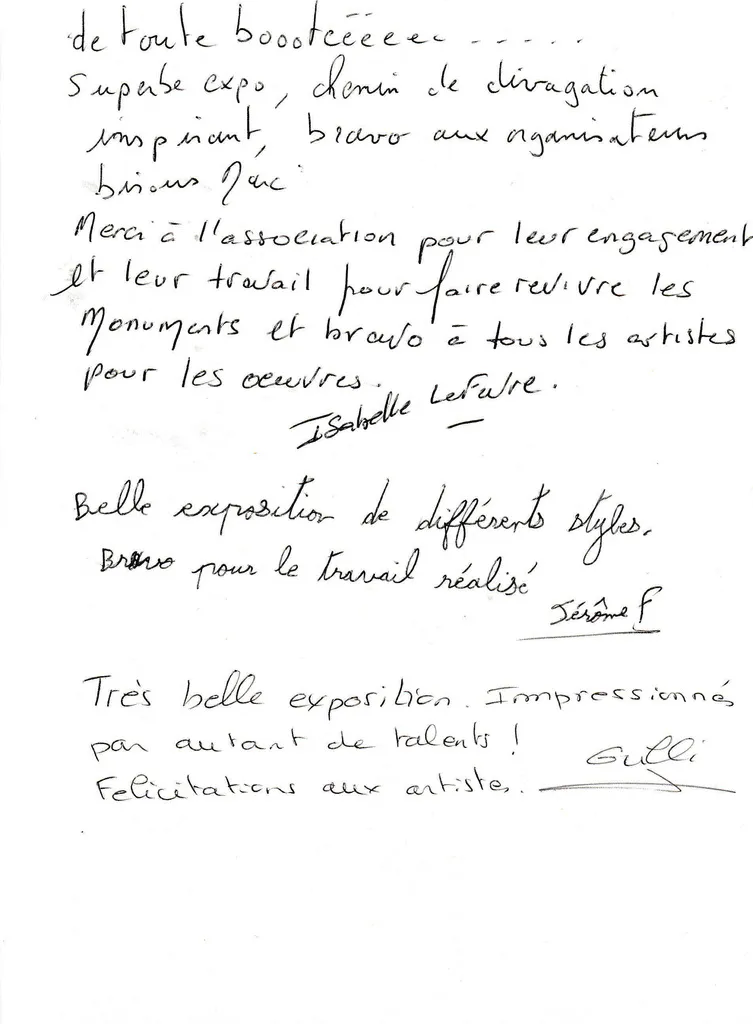 de toute boootéééeee - - - - - .
Superbe expo, chemin de divagation
inspirant, bravo aux organisateurs
bisous Marc
Merci à l'association pour leur engagement
et leur travail pour faire revivre les
Monuments et bravo à tous les artistes
pour les oeuvres.
Isabelle Lefaire.
Belle exposition de différents styles.
Bravo pour le travail réalisé
Jérôme F
Très belle exposition. Impressionnés
par autant de talents !
Gulli
Felicitations aux artistes.